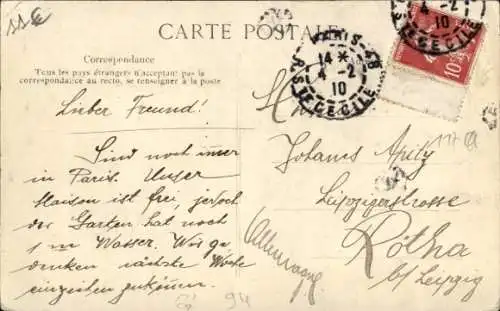 CARTE POSTALE
Correspondance
Tous les pays étrangers n'acceptant pas la
correspondance au recto, se renseigner à la poste
Lieber Freund!
Sind noch immer
in Paris. Unser
Maison ist frei, jedoch
der Garten hat noch
1 m Wasser. Wir ge-
denken nächste Woche
einziehen zu können.
PARIS 48
14 *
4 - 2
10
R. STE CECILE
4 - 2
10
R. STE CECILE
10
Herrn
Johanns
Leipzigerstrosse
Rötha
b/ Leipzig
Allemagne
1178
94